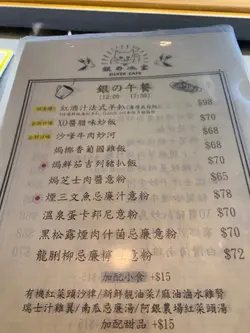 銀の午餐
(12:00 - 17:30)
紅酒汁法式羊扒 $98
XO醬臘味炒飯 $70
沙嗲牛肉炒河 $68
焗椰香葡國雞飯 $68
焗鮮茄吉列豬扒飯 $70
焗芝士肉醬意粉 $65
煙三文魚忌廉汁意粉 $78
溫泉蛋卡邦尼意粉 $70
黑松露煙肉什菌忌廉意粉 $70
龍脷柳忌廉檸意粉 $72
加配小食 +$15
有機紅菜頭沙律/新鮮靚油菜/麻油滷水雞腎
瑞士汁雞翼/南瓜忌廉湯/阿銀農場紅菜頭湯
加配甜品 +$15